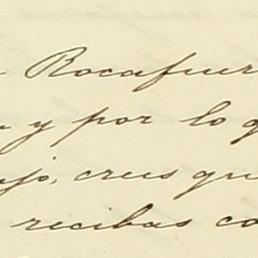 Rocafuer
y por lo q
ajo, crees que
recibas co